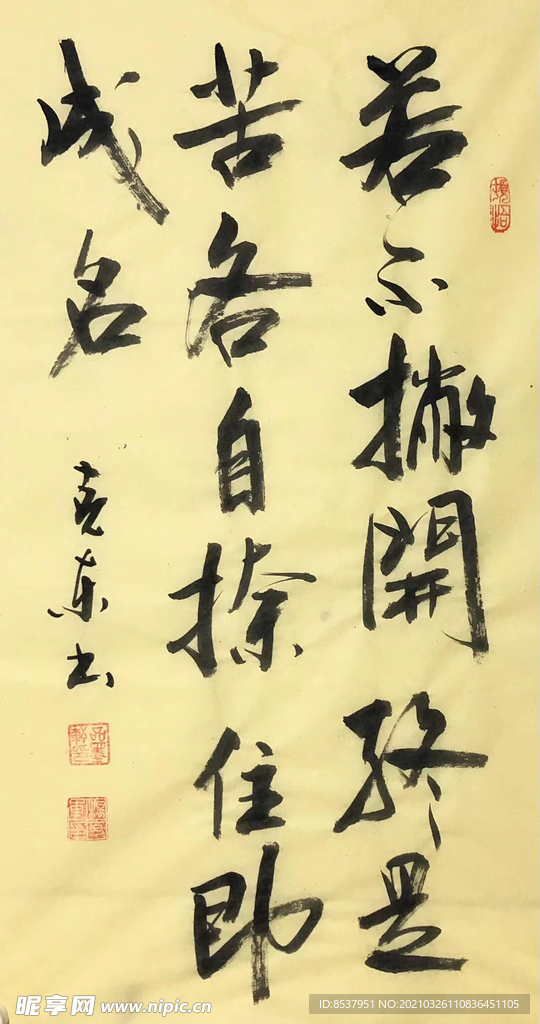 若不撇開終是
苦各自捺住即
成名
东书
昵享网 www.nipic.cn
ID:8537951 NO:20210326110836451105